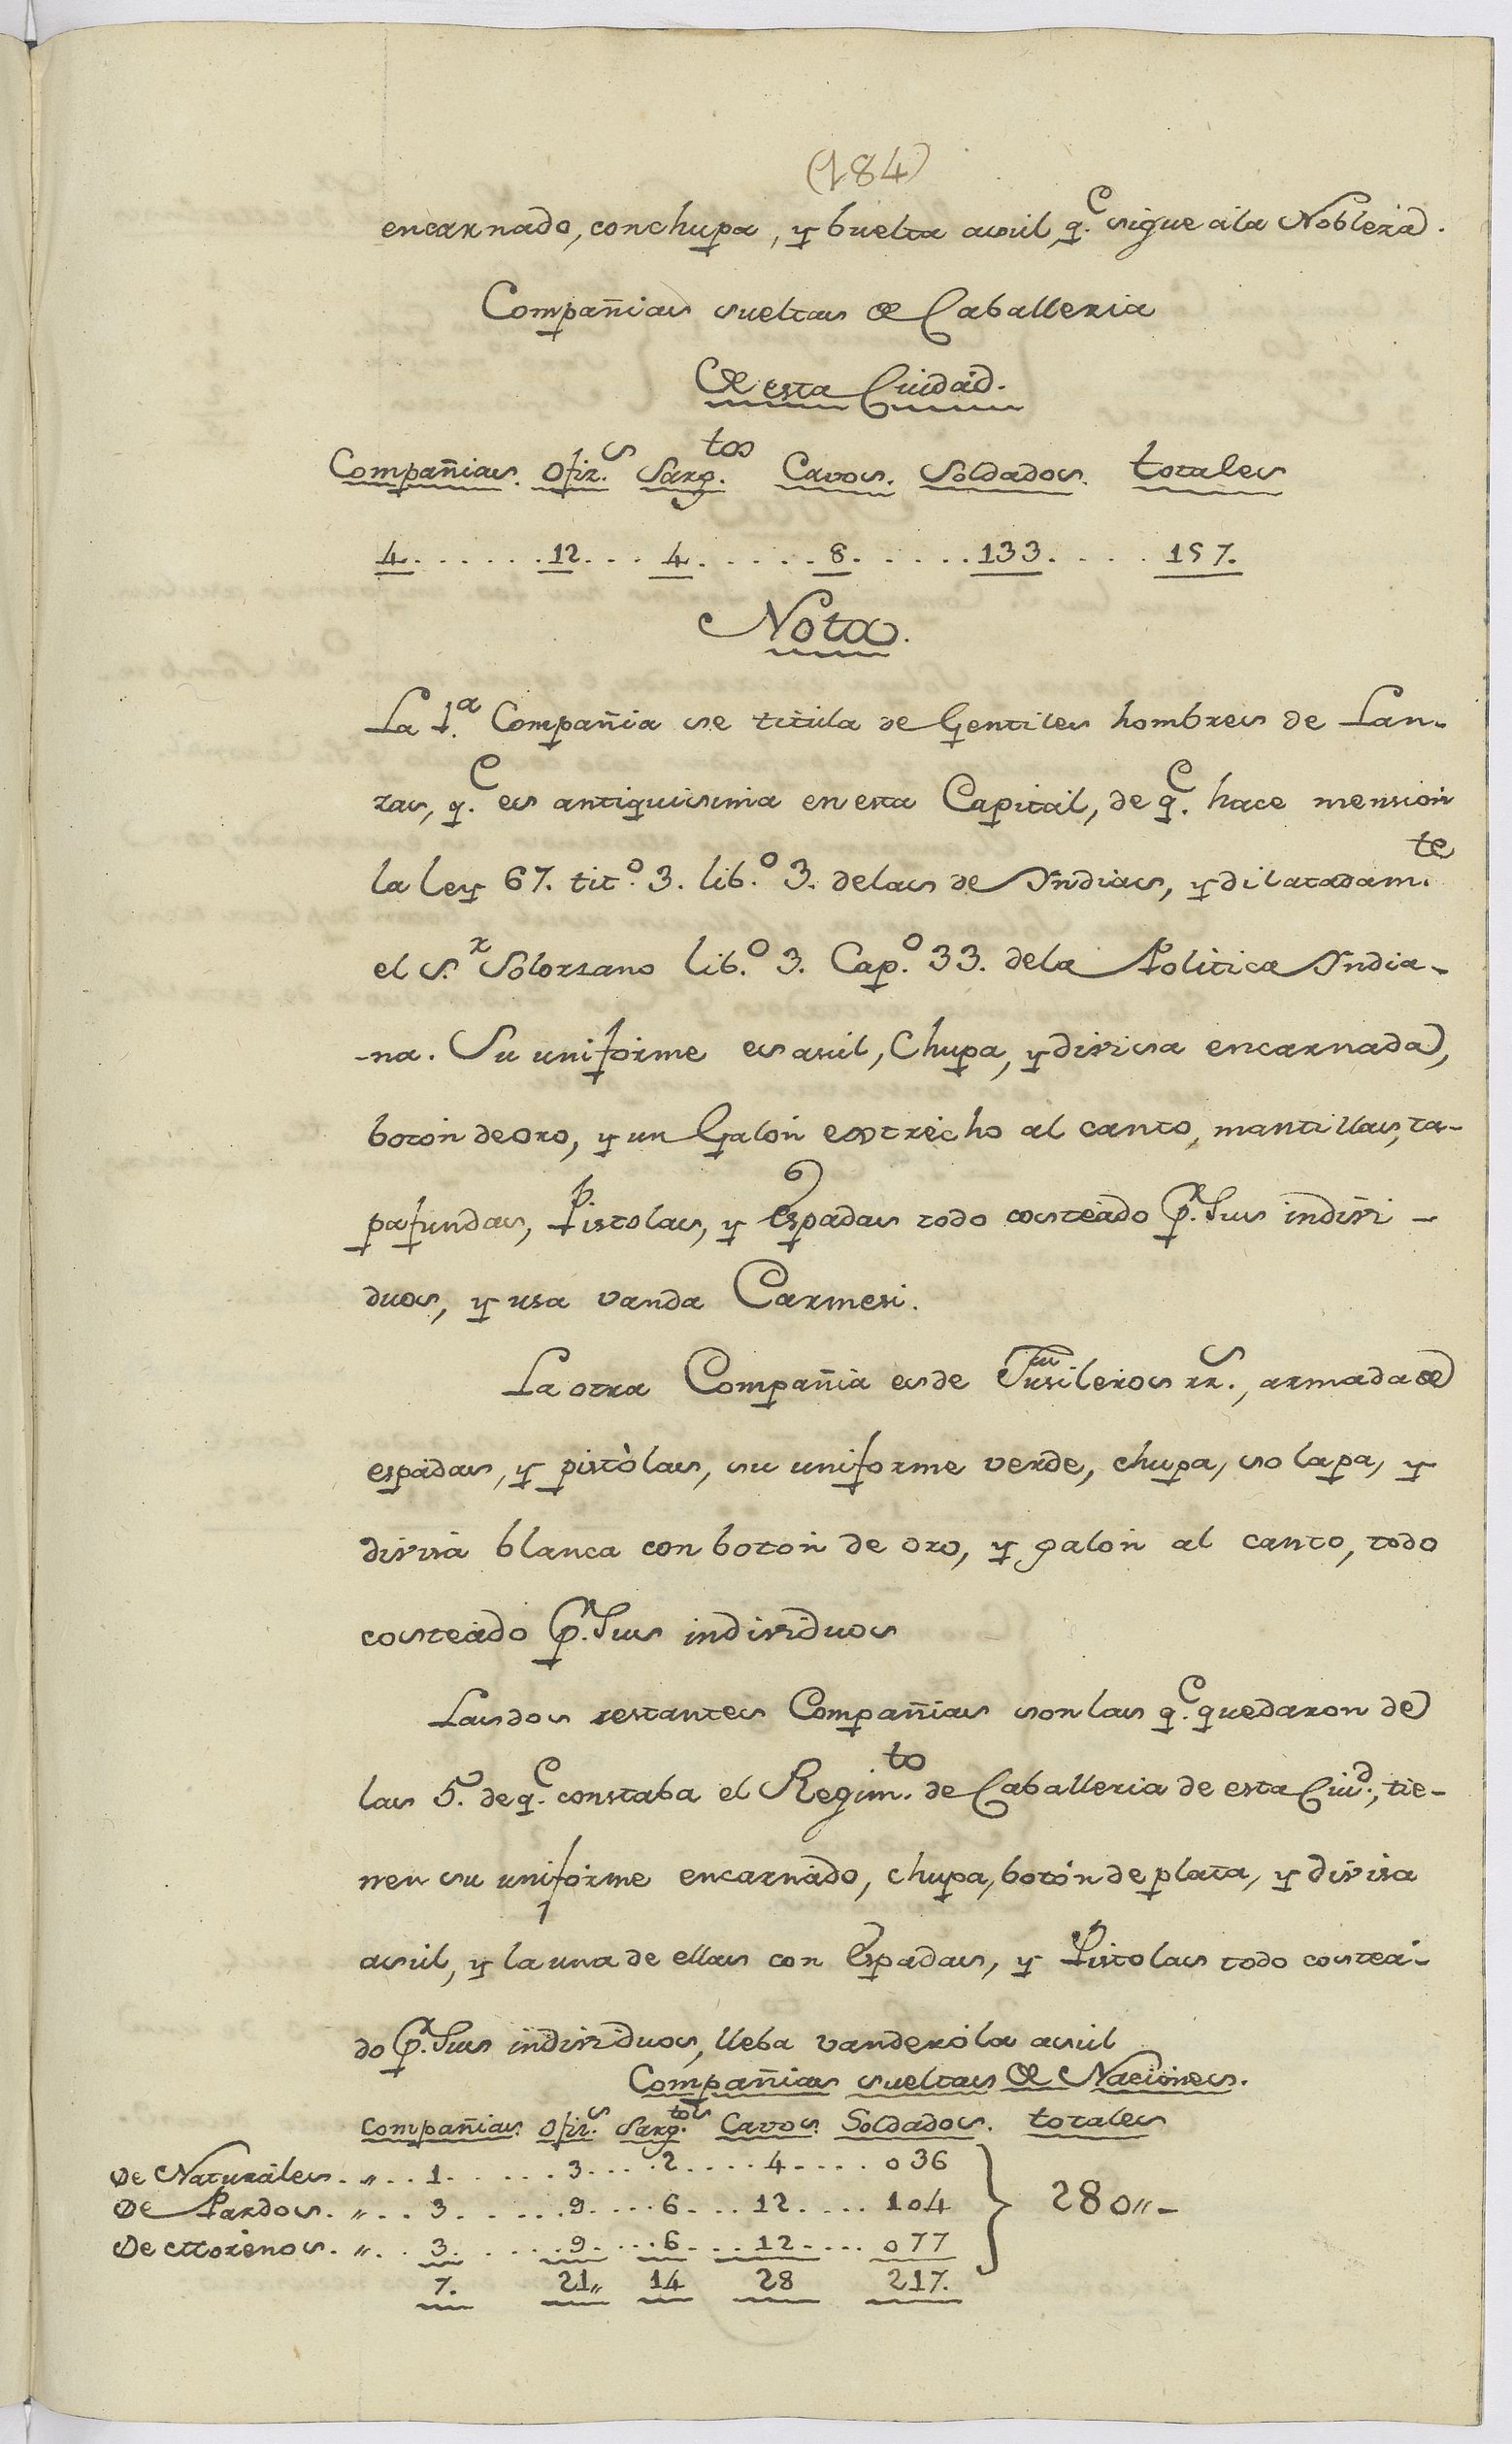 (184)
encarnado, con chupa, y buelta asul, q.e sigue a la Nobleza.
Compañias sueltas de Caballeria
De esta Ciudad.
Compañias. Ofiz.s Sarg.tos Cavos. Soldados. totales
4. . . . . . . 12. . . 4. . . . . . 8. . . . . . 133. . . . . 157.
Nota.
La 1.a Compañia se titula de Gentiles hombres de Lan-
zas, q.e es antiquisima en esta Capital, de q.e hace mension
la ley 67. tit.o 3. lib.o 3. delas de Yndias, y dilatadam.te
el S.r Solorzano lib.o 3. Cap.o 33. dela Politica Yndia-
-na. Su uniforme es asul, Chupa, y divisa encarnada,
boton de oro, y un Galon estrecho al canto, mantillas, ta-
pafundas, Pistolas, y Espadas todo costeado p.r Sus indivi-
duos, y usa vanda Carmesi.
La otra Compañia es de Fusileros rr.s, armada de
espadas, y pistòlas, su uniforme verde, chupa, solapa, y
divisa blanca con boton de oro, y galon al canto, todo
costeado p.r Sus individuos
Las dos restantes Compañias son las q.e quedaron de
las 5. de q.e constaba el Regim.to de Caballeria de esta Ciud.d, tie-
nen su uniforme encarnado, chupa, botón de plata, y divisa
asul, y la una de ellas con Espadas, y Pistolas todo costea-
do p.r Sus individuos, lleba vanderola asul
Compañias sueltas de Naciones.
Compañias. Ofiz.s Sarg.tos Cavos. Soldados. totales
De Naturáles. „ . . 1. . . . . . 3. . . . 2. . . . 4. . . . 036
De Pardos. „ . . 3. . . . . . 9. . . . 6. . . 12. . . . 104 } 280„-
De Morenos. „ . . 3. . . . . . 9. . . . 6. . . 12. . . . 077
7. 21„ 14 28 217.